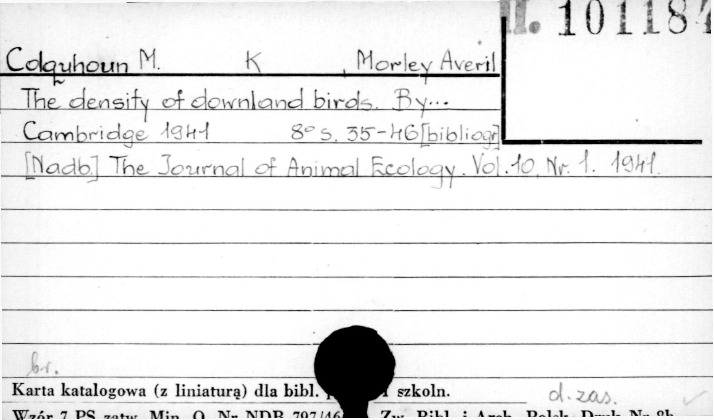 II. 101187
Colquhoun M. K , Morley Averil
The density of downland birds. By...
Cambridge 1941 8° s. 35-46 [bibliogr]
[Nadb.] The Journal of Animal Ecology. Vol. 10, Nr. 1. 1941.
br.
Karta katalogowa (z liniaturą) dla bibl. szkoln.
d. zas.
Wzór 7 PS zatw. Min. O. Nr NDB 797/46 Zw. Bibl. i Arch. Polsk. Druk Nr 8b